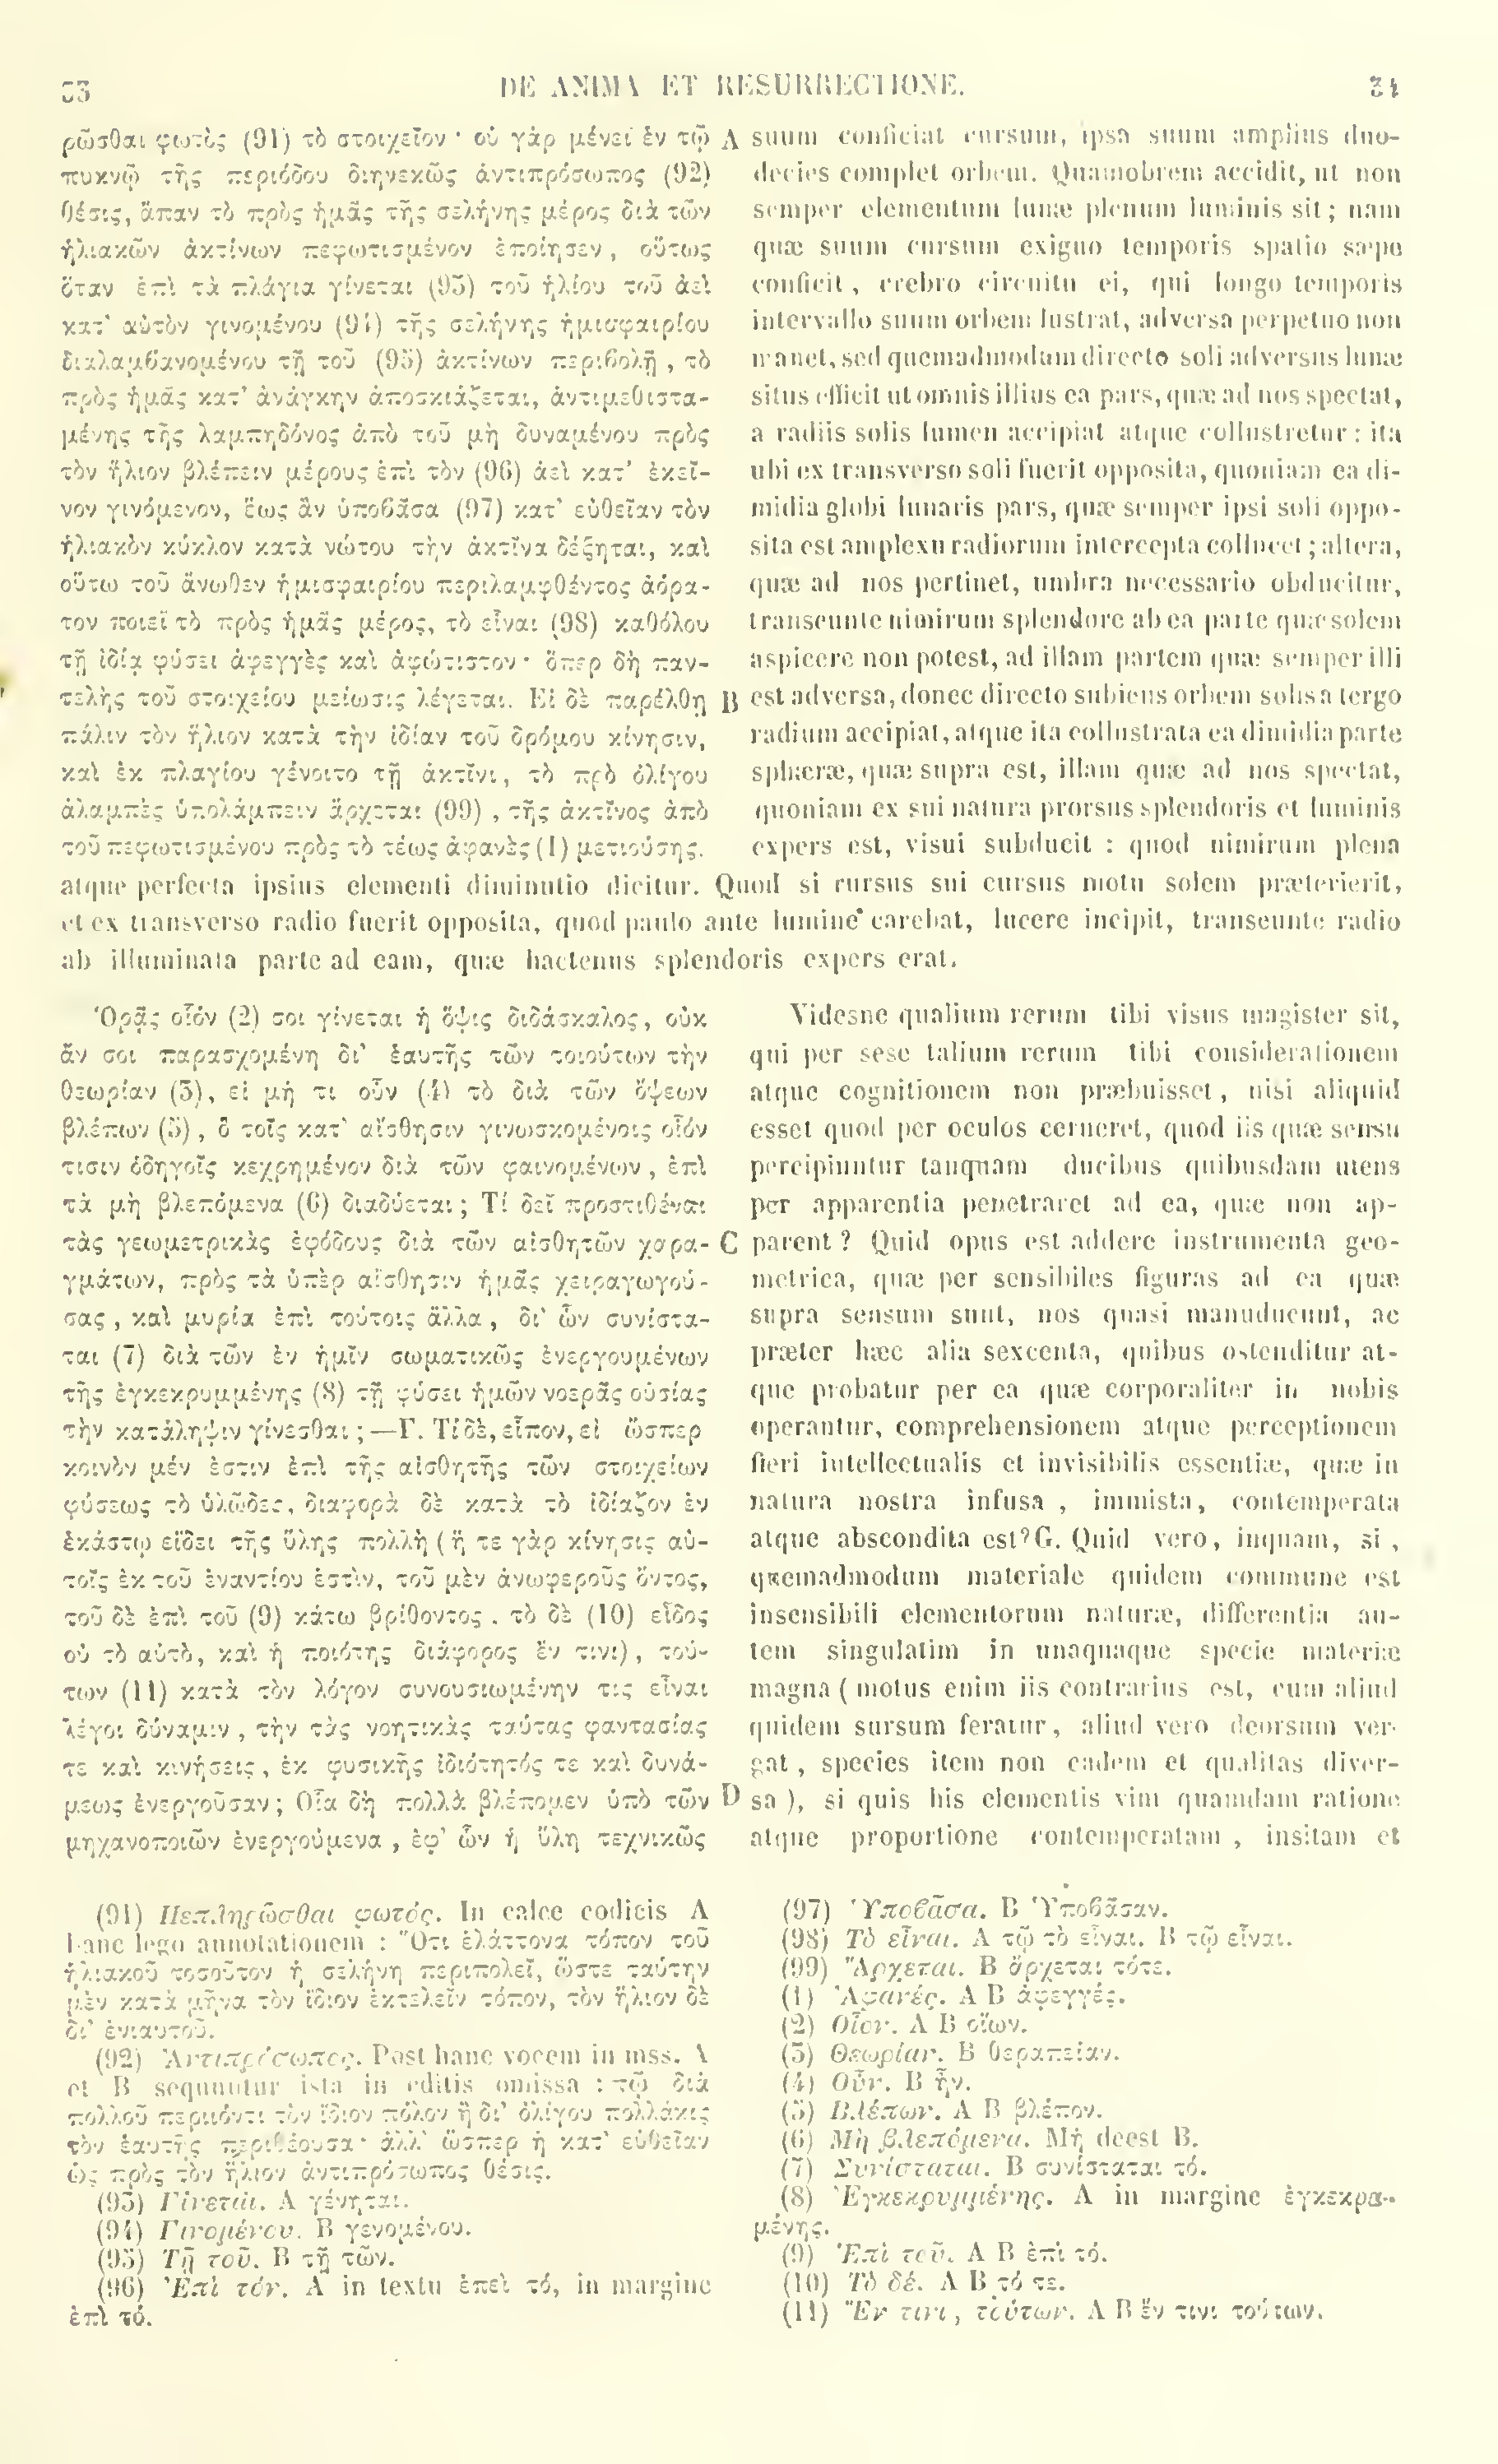 33 DE ANIMA ET RESURRECTIONE. 34
ρῶσθαι φωτὸς (91) τὸ στοιχεῖον · οὐ γὰρ μένει ἐν τῷ
πυκνῷ τῆς περιόδου διηνεκῶς ἀντιπρόσωπος (92)
θέσις, ἅπαν τὸ πρὸς ἡμᾶς τῆς σελήνης μέρος διὰ τῶν
ἡλιακῶν ἀκτίνων πεφωτισμένον ἐποίησεν, οὕτως
ὅταν ἐπὶ τὰ πλάγια γίνεται (93) τοῦ ἡλίου τοῦ ἀεὶ
κατ' αὐτὸν γινομένου (94) τῆς σελήνης ἡμισφαιρίου
διαλαμβανομένου τῇ τοῦ (95) ἀκτίνων περιβολῇ, τὸ
πρὸς ἡμᾶς κατ' ἀνάγκην ἀποσκιάζεται, ἀντιμεθιστα-
μένης τῆς λαμπηδόνος ἀπὸ τοῦ μὴ δυναμένου πρὸς
τὸν ἥλιον βλέπειν μέρους ἐπὶ τὸν (96) ἀεὶ κατ' ἐκεῖ-
νον γινόμενον, ἕως ἂν ὑποβᾶσα (97) κατ' εὐθεῖαν τὸν
ἡλιακὸν κύκλον κατὰ νώτου τὴν ἀκτῖνα δέξηται, καὶ
οὕτω τοῦ ἄνωθεν ἡμισφαιρίου περιλαμφθέντος ἀόρα-
τον ποιεῖ τὸ πρὸς ἡμᾶς μέρος, τὸ εἶναι (98) καθόλου
τῇ ἰδίᾳ φύσει ἀφεγγὲς καὶ ἀφώτιστον · ὅπερ δὴ παν-
τελὴς τοῦ στοιχείου μείωσις λέγεται. Εἰ δὲ παρέλθῃ
πάλιν τὸν ἥλιον κατὰ τὴν ἰδίαν τοῦ δρόμου κίνησιν,
καὶ ἐκ πλαγίου γένοιτο τῇ ἀκτῖνι, τὸ πρὸ ὀλίγου
ἀλαμπὲς ὑπολάμπειν ἄρχεται (99), τῆς ἀκτῖνος ἀπὸ
τοῦ πεφωτισμένου πρὸς τὸ τέως ἀφανὲς (1) μετιούσης.
A suum conficiat cursum, ipsa suum amplius duo-
decies complet orbem. Quamobrem accidit, ut non
semper elementum lunæ plenum luminis sit; nam
quæ suum cursum exiguo temporis spatio sæpe
conficit, crebro circuitu ei, qui longo temporis
intervallo suum orbem lustrat, adversa perpetuo non
manet, sed quemadmodum directo soli adversus lunæ
situs efficit ut omnis illius ea pars, quæ ad nos spectat,
a radiis solis lumen accipiat atque collustretur : ita
ubi ex transverso soli fuerit opposita, quoniam ea di-
midia globi lunaris pars, quæ semper ipsi soli oppo-
sita est amplexu radiorum intercepta collucet; altera,
quæ ad nos pertinet, umbra necessario obducitur,
transeunte nimirum splendore ab ea parte quæ solem
aspicere non potest, ad illam partem quæ semper illi
B est adversa, donec directo subiens orbem solis a tergo
radium accipiat, atque ita collustrata ea dimidia parte
sphæræ, quæ supra est, illam quæ ad nos spectat,
quoniam ex sui natura prorsus splendoris et luminis
expers est, visui subducit : quod nimirum plena
atque perfecta ipsius elementi diminutio dicitur. Quod si rursus sui cursus motu solem præterierit,
et ex transverso radio fuerit opposita, quod paulo ante lumine carebat, lucere incipit, transeunte radio
ab illuminata parte ad eam, quæ hactenus splendoris expers erat.
Ὁρᾷς οἷόν (2) σοι γίνεται ἡ ὄψις διδάσκαλος, οὐκ
ἄν σοι παρασχομένη δι' ἑαυτῆς τῶν τοιούτων τὴν
θεωρίαν (3), εἰ μή τι οὖν (4) τὸ διὰ τῶν ὄψεων
βλέπων (5), ὃ τοῖς κατ' αἴσθησιν γινωσκομένοις οἷόν
τισιν ὁδηγοῖς κεχρημένον διὰ τῶν φαινομένων, ἐπὶ
τὰ μὴ βλεπόμενα (6) διαδύεται; Τί δεῖ προστιθέναι
τὰς γεωμετρικὰς ἐφόδους διὰ τῶν αἰσθητῶν χαρα-
γμάτων, πρὸς τὰ ὑπὲρ αἴσθησιν ἡμᾶς χειραγωγού-
σας, καὶ μυρία ἐπὶ τούτοις ἄλλα, δι' ὧν συνίστα-
ται (7) διὰ τῶν ἐν ἡμῖν σωματικῶς ἐνεργουμένων
τῆς ἐγκεκρυμμένης (8) τῇ φύσει ἡμῶν νοερᾶς οὐσίας
τὴν κατάληψιν γίνεσθαι; —Γ. Τί δὲ, εἶπον, εἰ ὥσπερ
κοινὸν μέν ἐστιν ἐπὶ τῆς αἰσθητῆς τῶν στοιχείων
φύσεως τὸ ὑλῶδες, διαφορὰ δὲ κατὰ τὸ ἰδίαζον ἐν
ἑκάστῳ εἴδει τῆς ὕλης πολλὴ (ἥ τε γὰρ κίνησις αὐ-
τοῖς ἐκ τοῦ ἐναντίου ἐστὶν, τοῦ μὲν ἀνωφεροῦς ὄντος,
τοῦ δὲ ἐπὶ τοῦ (9) κάτω βρίθοντος. τὸ δὲ (10) εἶδος
οὐ τὸ αὐτὸ, καὶ ἡ ποιότης διάφορος ἔν τινι), τού-
των (11) κατὰ τὸν λόγον συνουσιωμένην τις εἶναι
λέγοι δύναμιν, τὴν τὰς νοητικὰς ταύτας φαντασίας
τε καὶ κινήσεις, ἐκ φυσικῆς ἰδιότητός τε καὶ δυνά-
μεως ἐνεργοῦσαν; Οἷα δὴ πολλὰ βλέπομεν ὑπὸ τῶν
μηχανοποιῶν ἐνεργούμενα, ἐφ' ὧν ἡ ὕλη τεχνικῶς
Videsne qualium rerum tibi visus magister sit,
qui per sese talium rerum tibi considerationem
atque cognitionem non præbuisset, nisi aliquid
esset quod per oculos cerneret, quod iis quæ sensu
percipiuntur tanquam ducibus quibusdam utens
per apparentia penetraret ad ea, quæ non ap-
C parent? Quid opus est addere instrumenta geo-
metrica, quæ per sensibiles figuras ad ea quæ
supra sensum sunt, nos quasi manuducunt, ac
præter hæc alia sexcenta, quibus ostenditur at-
que probatur per ea quæ corporaliter in nobis
operantur, comprehensionem atque perceptionem
fieri intellectualis et invisibilis essentiæ, quæ in
natura nostra infusa, immista, contemperata
atque abscondita est? G. Quid vero, inquam, si,
quemadmodum materiale quidem commune est
insensibili elementorum naturæ, differentia au-
tem singulatim in unaquaque specie materiæ
magna (motus enim iis contrarius est, cum aliud
quidem sursum feratur, aliud vero deorsum ver-
gat, species item non eadem et qualitas diver-
D sa), si quis his elementis vim quamdam ratione
atque proportione contemperatam, insitam et
(91) Πεπληρῶσθαι φωτός. In calce codicis A
hanc lego annotationem : Ὅτι ἐλάττονα τόπον τοῦ
ἡλιακοῦ τοσοῦτον ἡ σελήνη περιπολεῖ, ὥστε ταύτην
μὲν κατὰ μῆνα τὸν ἴδιον ἐκτελεῖν τόπον, τὸν ἥλιον δὲ
δι' ἐνιαυτοῦ.
(92) Ἀντιπρόσωπος. Post hanc vocem in mss. A
et B sequuntur ista in editis omissa : τῷ διὰ
πολλοῦ περιιόντι τὸν ἴδιον πόλον ἢ δι' ὀλίγου πολλάκις
τὸν ἑαυτῆς περιθέουσα · ἀλλ' ὥσπερ ἡ κατ' εὐθεῖαν
ὡς πρὸς τὸν ἥλιον ἀντιπρόσωπος θέσις.
(93) Γίνεται. A γένηται.
(94) Γινομένου. B γενομένου.
(95) Τῇ τοῦ. B τῇ τῶν.
(96) Ἐπὶ τόν. A in textu ἐπεὶ τό, in margine
ἐπὶ τό.
(97) Ὑποβᾶσα. B Ὑποβᾶσαν.
(98) Τὸ εἶναι. A τῷ τὸ εἶναι. B τῷ εἶναι.
(99) Ἄρχεται. B ἄρχεται τότε.
(1) Ἀφανές. A B ἀφεγγές.
(2) Οἷον. A B οἵων.
(3) Θεωρίαν. B θεραπείαν.
(4) Οὖν. B ἦν.
(5) Βλέπων. A B βλέπον.
(6) Μὴ βλεπόμενα. Μή deest B.
(7) Συνίσταται. B συνίσταται τό.
(8) Ἐγκεκρυμμένης. A in margine ἐγκεκρα-
μένης.
(9) Ἐπὶ τοῦ. A B ἐπὶ τό.
(10) Τὸ δέ. A B τό τε.
(11) Ἔν τινι, τούτων. A B ἔν τινι τούτων.